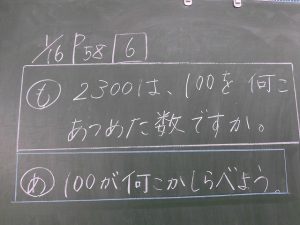 1/16 P58 6
も 2300は、100を何こ
あつめた数ですか。
め 100が何こかしらべよう。